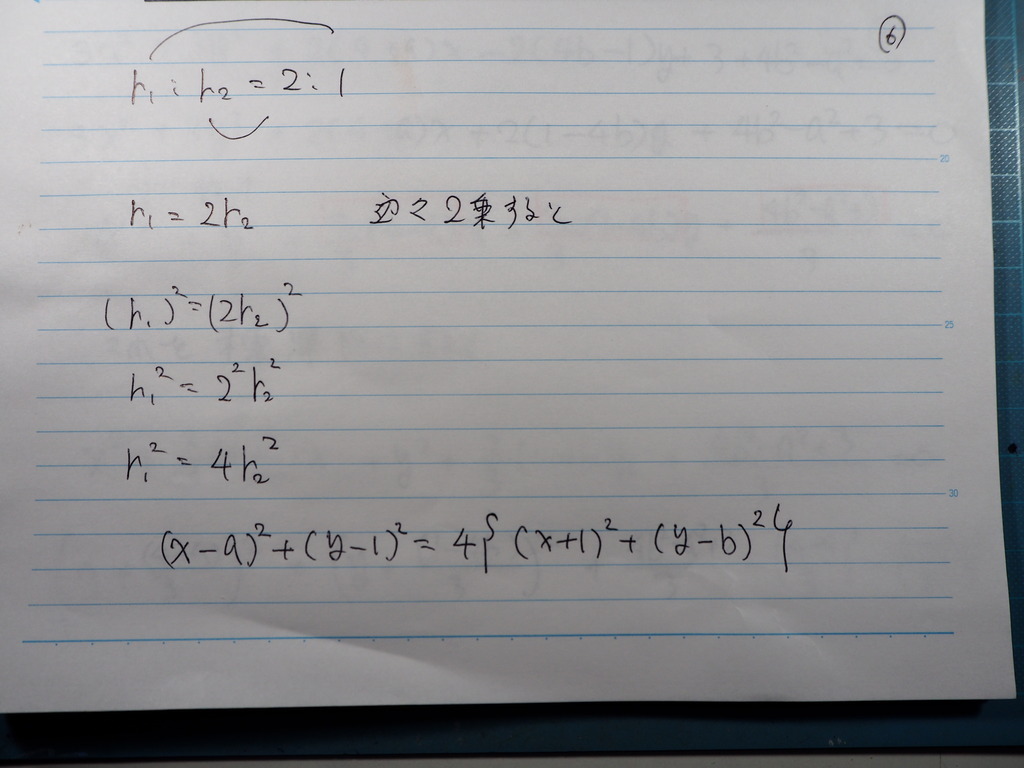 ⑥
r₁ : r₂ = 2 : 1
r₁ = 2r₂ 辺々2乗すると
(r₁)² = (2r₂)²
r₁² = 2²r₂²
r₁² = 4r₂²
(x-a)² + (y-1)² = 4{(x+1)² + (y-b)²}
20
25
30